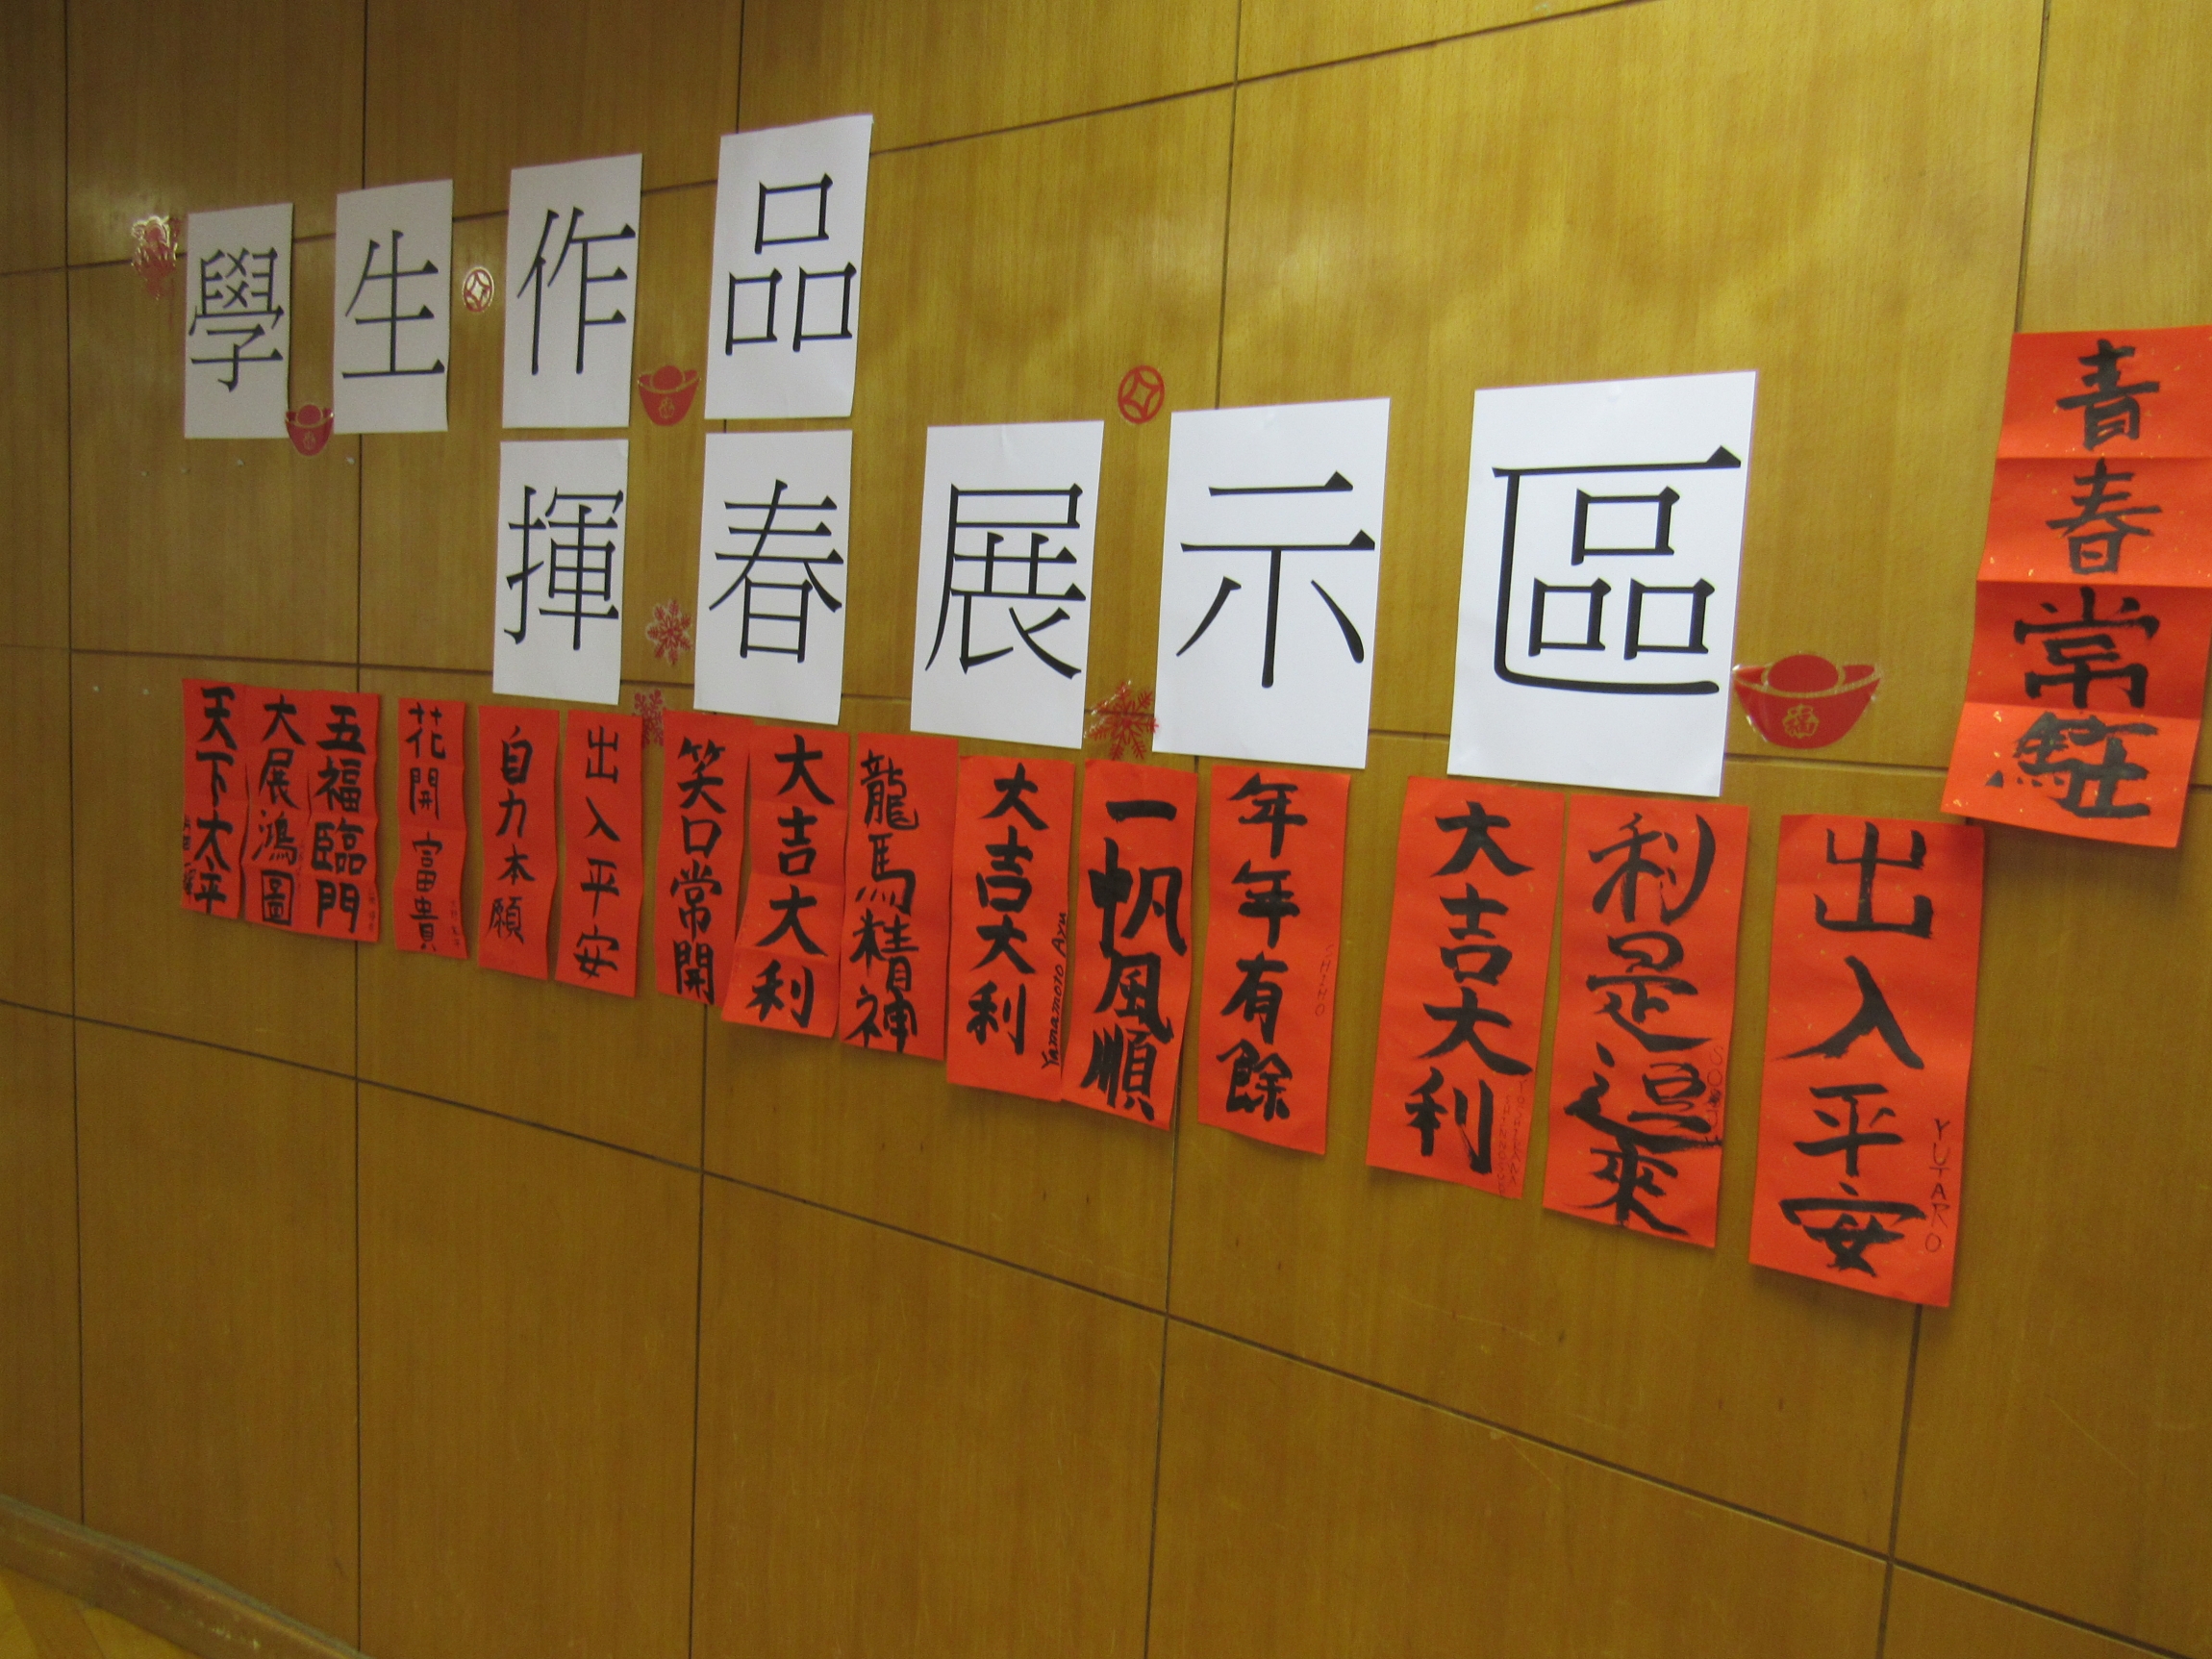 學生作品
揮春展示區
天下太平
大展鴻圖
五福臨門
花開富貴
自力本願
出入平安
笑口常開
大吉大利
龍馬精神
大吉大利
Yamamoto Ayu
一帆風順
年年有餘
CHIHO
大吉大利
利是逗來
出入平安
YUTARO
青春常駐